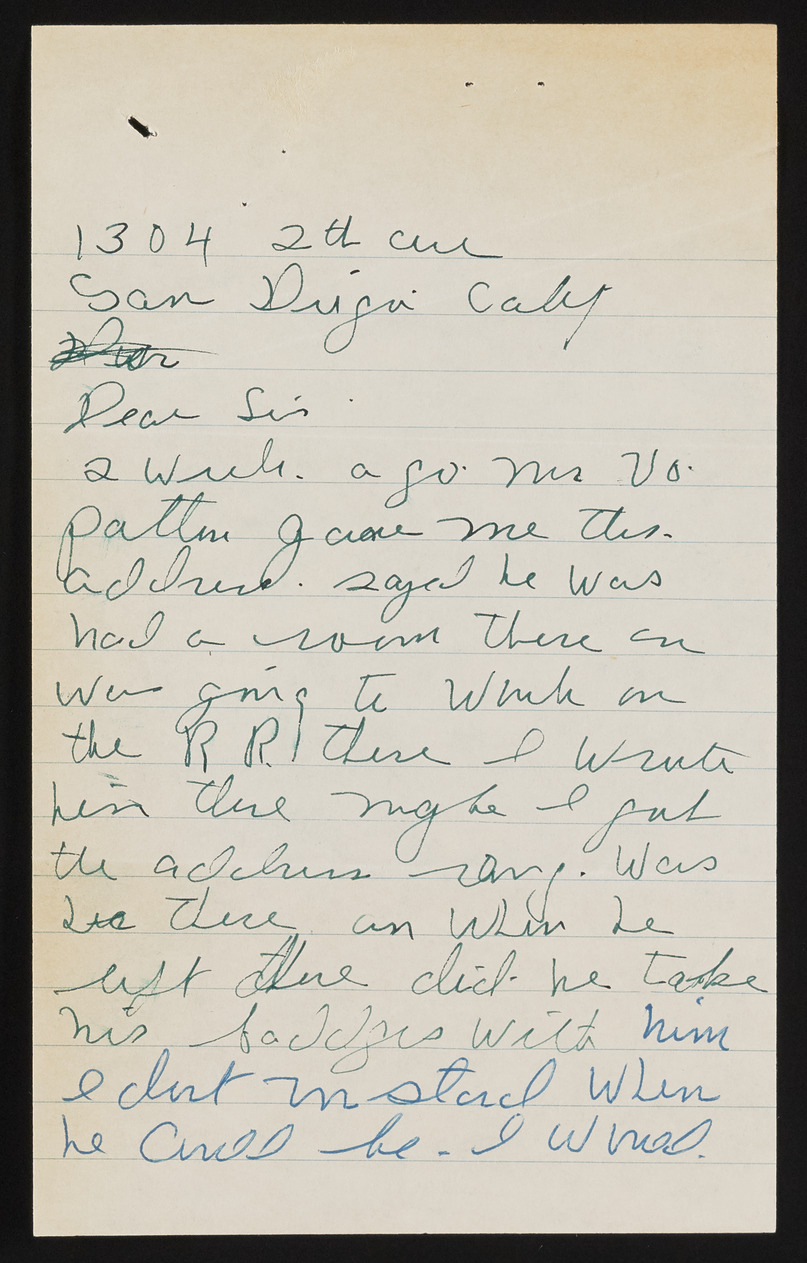 1304 2th ave
San Diigo Calif
Dear Sir
2 week. ago. Mr Vo.
Patten gave me this.
address. sayed he was
had a room there an
was going to work on
the R R. there I wrote
him there maybe I got
the address rong. Was
he there an when he
left there did he take
his baddges with him
I dont un stand when
he could be - I